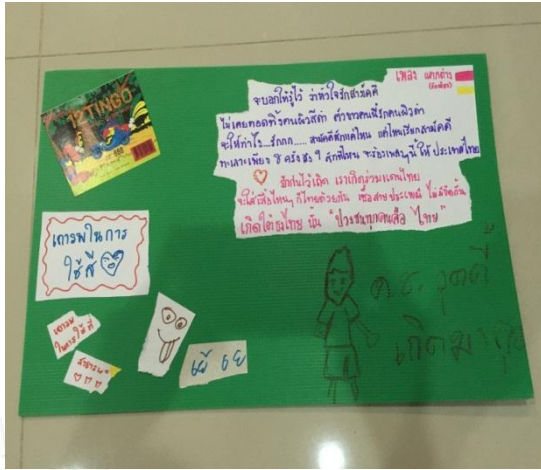 12 TINGO
เพลง แตกต่าง
จะบอกให้รู้ไว้ ว่าหัวใจรักสามัคคี
ไม่เคยทอดทิ้งคนผิวสีดำ คำขาวคนนี้รักคนผิวดำ
จะให้ทำไง...รักกก..... สามัคคีสักแค่ไหน แต่ไทยเรียกสามัคคี
ทะเลาะเพียง 8 ครั้ง สัก ให้ ประเทศไทย
รักกันไว้เถิด เราเกิดร่วมแดนไทย
จะใส่เสื้อไหนๆ ก็ไทยด้วยกัน เชื้อสายประเพณี ไม่มีขีดคั่น
เกิดใต้ธงไทย นั้น "ปวงชนทุกคนคือ ไทย"
เคารพในการ
ใช้สี
เคารพ
ในการใช้ที่
สาธารณะ
เย้ เย
ด.ช. วุฒิ
เกิดมา